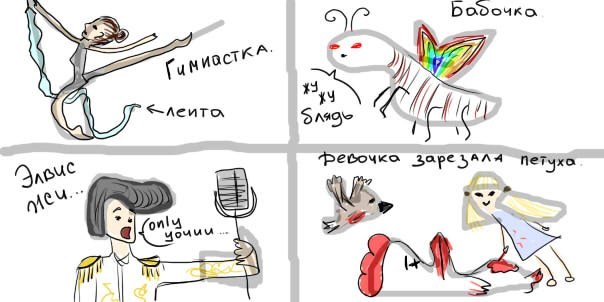 Гимнастка.
←лента
Бабочка.
жу
жу
блядь
Элвис
жги...
only
youuu...
Девочка зарезала петуха.
1+